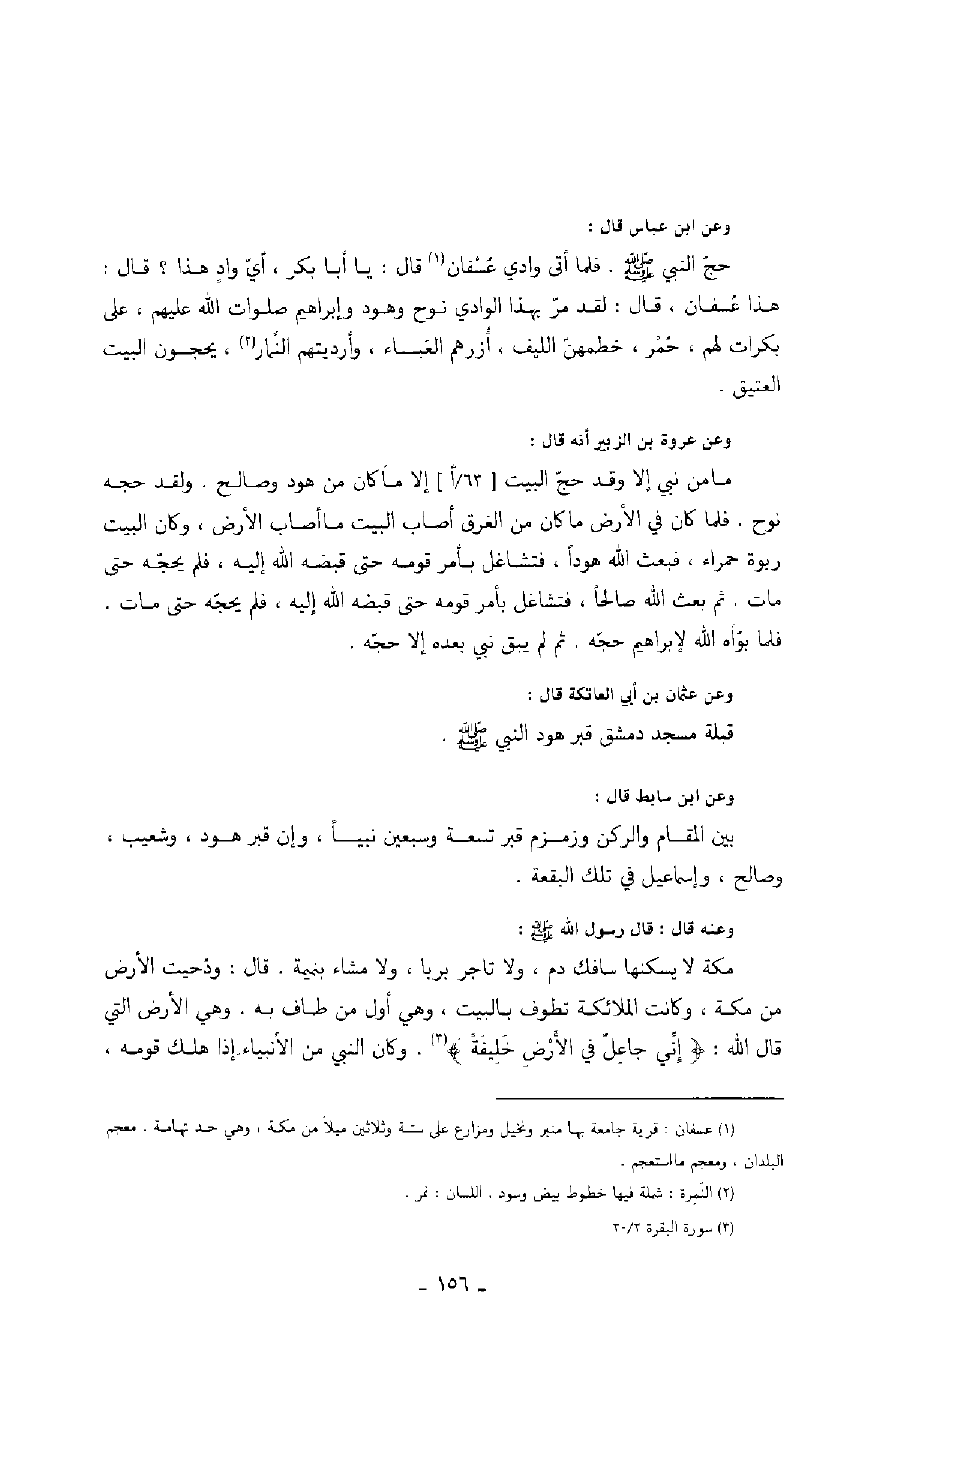 وعن ابن عباس قال :
حجّ النبي ﷺ . فلما أتى وادي عُسْفان(١) قال : يـا أبـا بكر ، أيّ وادٍ هـذا ؟ قـال :
هـذا عُـسفـان ، قـال : لقـد مرّ بهـذا الوادي نـوح وهـود وإبراهيم صلـوات الله عليهم ، على
بكرات لهم ، حُمْر ، خطمهنّ الليف ، أُزرهم العَبـــاء ، وأرديتهم النِّمار(٢) ، يحجـــون البيت
العتيق .
وعن عروة بن الزبير أنه قال :
مـامن نبي إلا وقـد حجّ البيت [ ٦٣/أ ] إلا مـاكان من هود وصـالـح . ولقـد حجـه
نوح . فلما كان في الأرض ماكان من الغرق أصـاب البيت مـاأصـاب الأرض ، وكان البيت
ربوة حمراء ، فبعث الله هوداً ، فتشـاغل بـأمر قومـه حتى قبضـه الله إليـه ، فلم يحجّـه حتى
مات . ثم بعث الله صالحاً ، فتشاغل بأمر قومه حتى قبضه الله إليه ، فلم يحجّه حتى مـات .
فلما بوّأه الله لإبراهيم حجّه . ثم لم يبق نبي بعده إلا حجّه .
وعن عثمان بن أبي العاتكة قال :
قبلة مسجد دمشق قبر هود النبي ﷺ .
وعن ابن سابط قال :
بين المقـــام والركن وزمـــزم قبر تسعـــة وسبعين نبيـــاً ، وإن قبر هـــود ، وشعيب ،
وصالح ، وإسماعيل في تلك البقعة .
وعنه قال : قال رسول الله ﷺ :
مكة لا يسكنها سافك دم ، ولا تاجر بربا ، ولا مشاء بنيمة . قال : ودُحيت الأرض
من مكـة ، وكانت الملائكـة تطوف بـالبيت ، وهي أول من طـاف بـه . وهي الأرض التي
قال الله : ﴿ إِنِّي جاعِلٌ في الأَرْضِ خَليفَةً ﴾(٣) . وكان النبي من الأنبياء إذا هلـك قومـه ،
(١) عسفان : قرية جامعة بها منبر ونخيل ومزارع على ستـة وثلاثين ميلاً من مكـة ، وهي حـد تهامـة . معجم
البلدان ، ومعجم مااستعجم .
(٢) النَّمِرة : شملة فيها خطوط بيض وسود . اللسان : نمر .
(٣) سورة البقرة ٣٠/٢
ـ ١٥٦ ـ